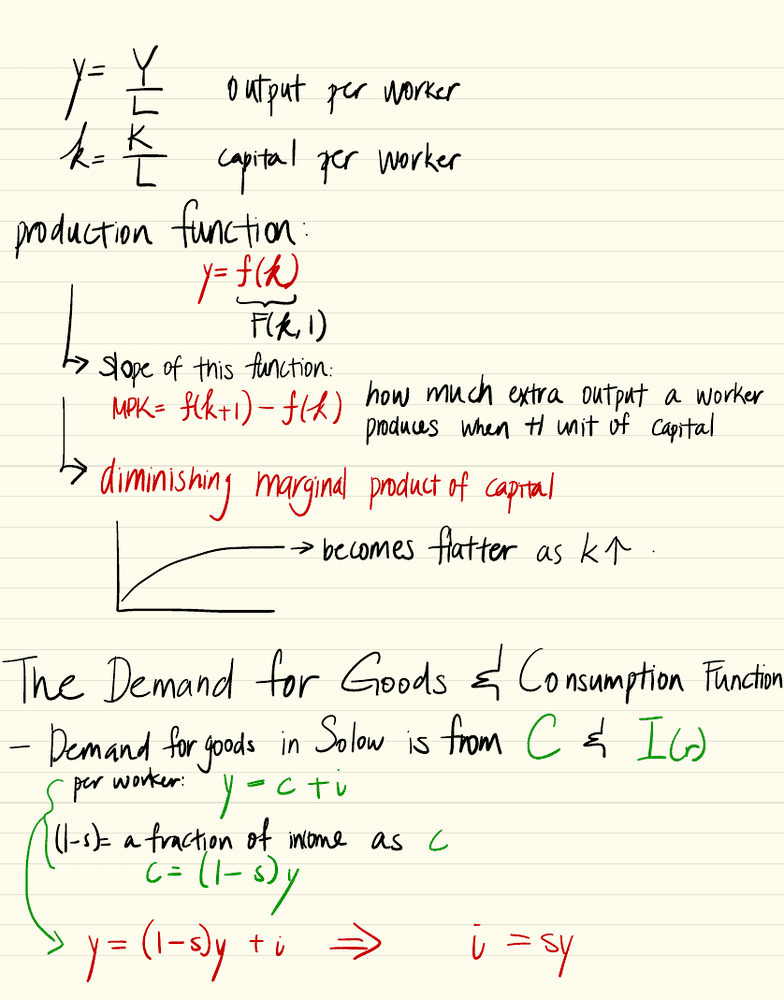 y = Y/L output per worker
k = K/L capital per worker
production function:
y = f(k)
F(k, 1)
slope of this function:
MPK = f(k+1) - f(k) how much extra output a worker
produces when +1 unit of capital
diminishing marginal product of capital
→ becomes flatter as k↑
The Demand for Goods & Consumption Function
- Demand for goods in Solow is from C & I(r)
per worker: y = c + i
(1-s) = a fraction of income as c
c = (1-s)y
y = (1-s)y + i ⇒ i = sy